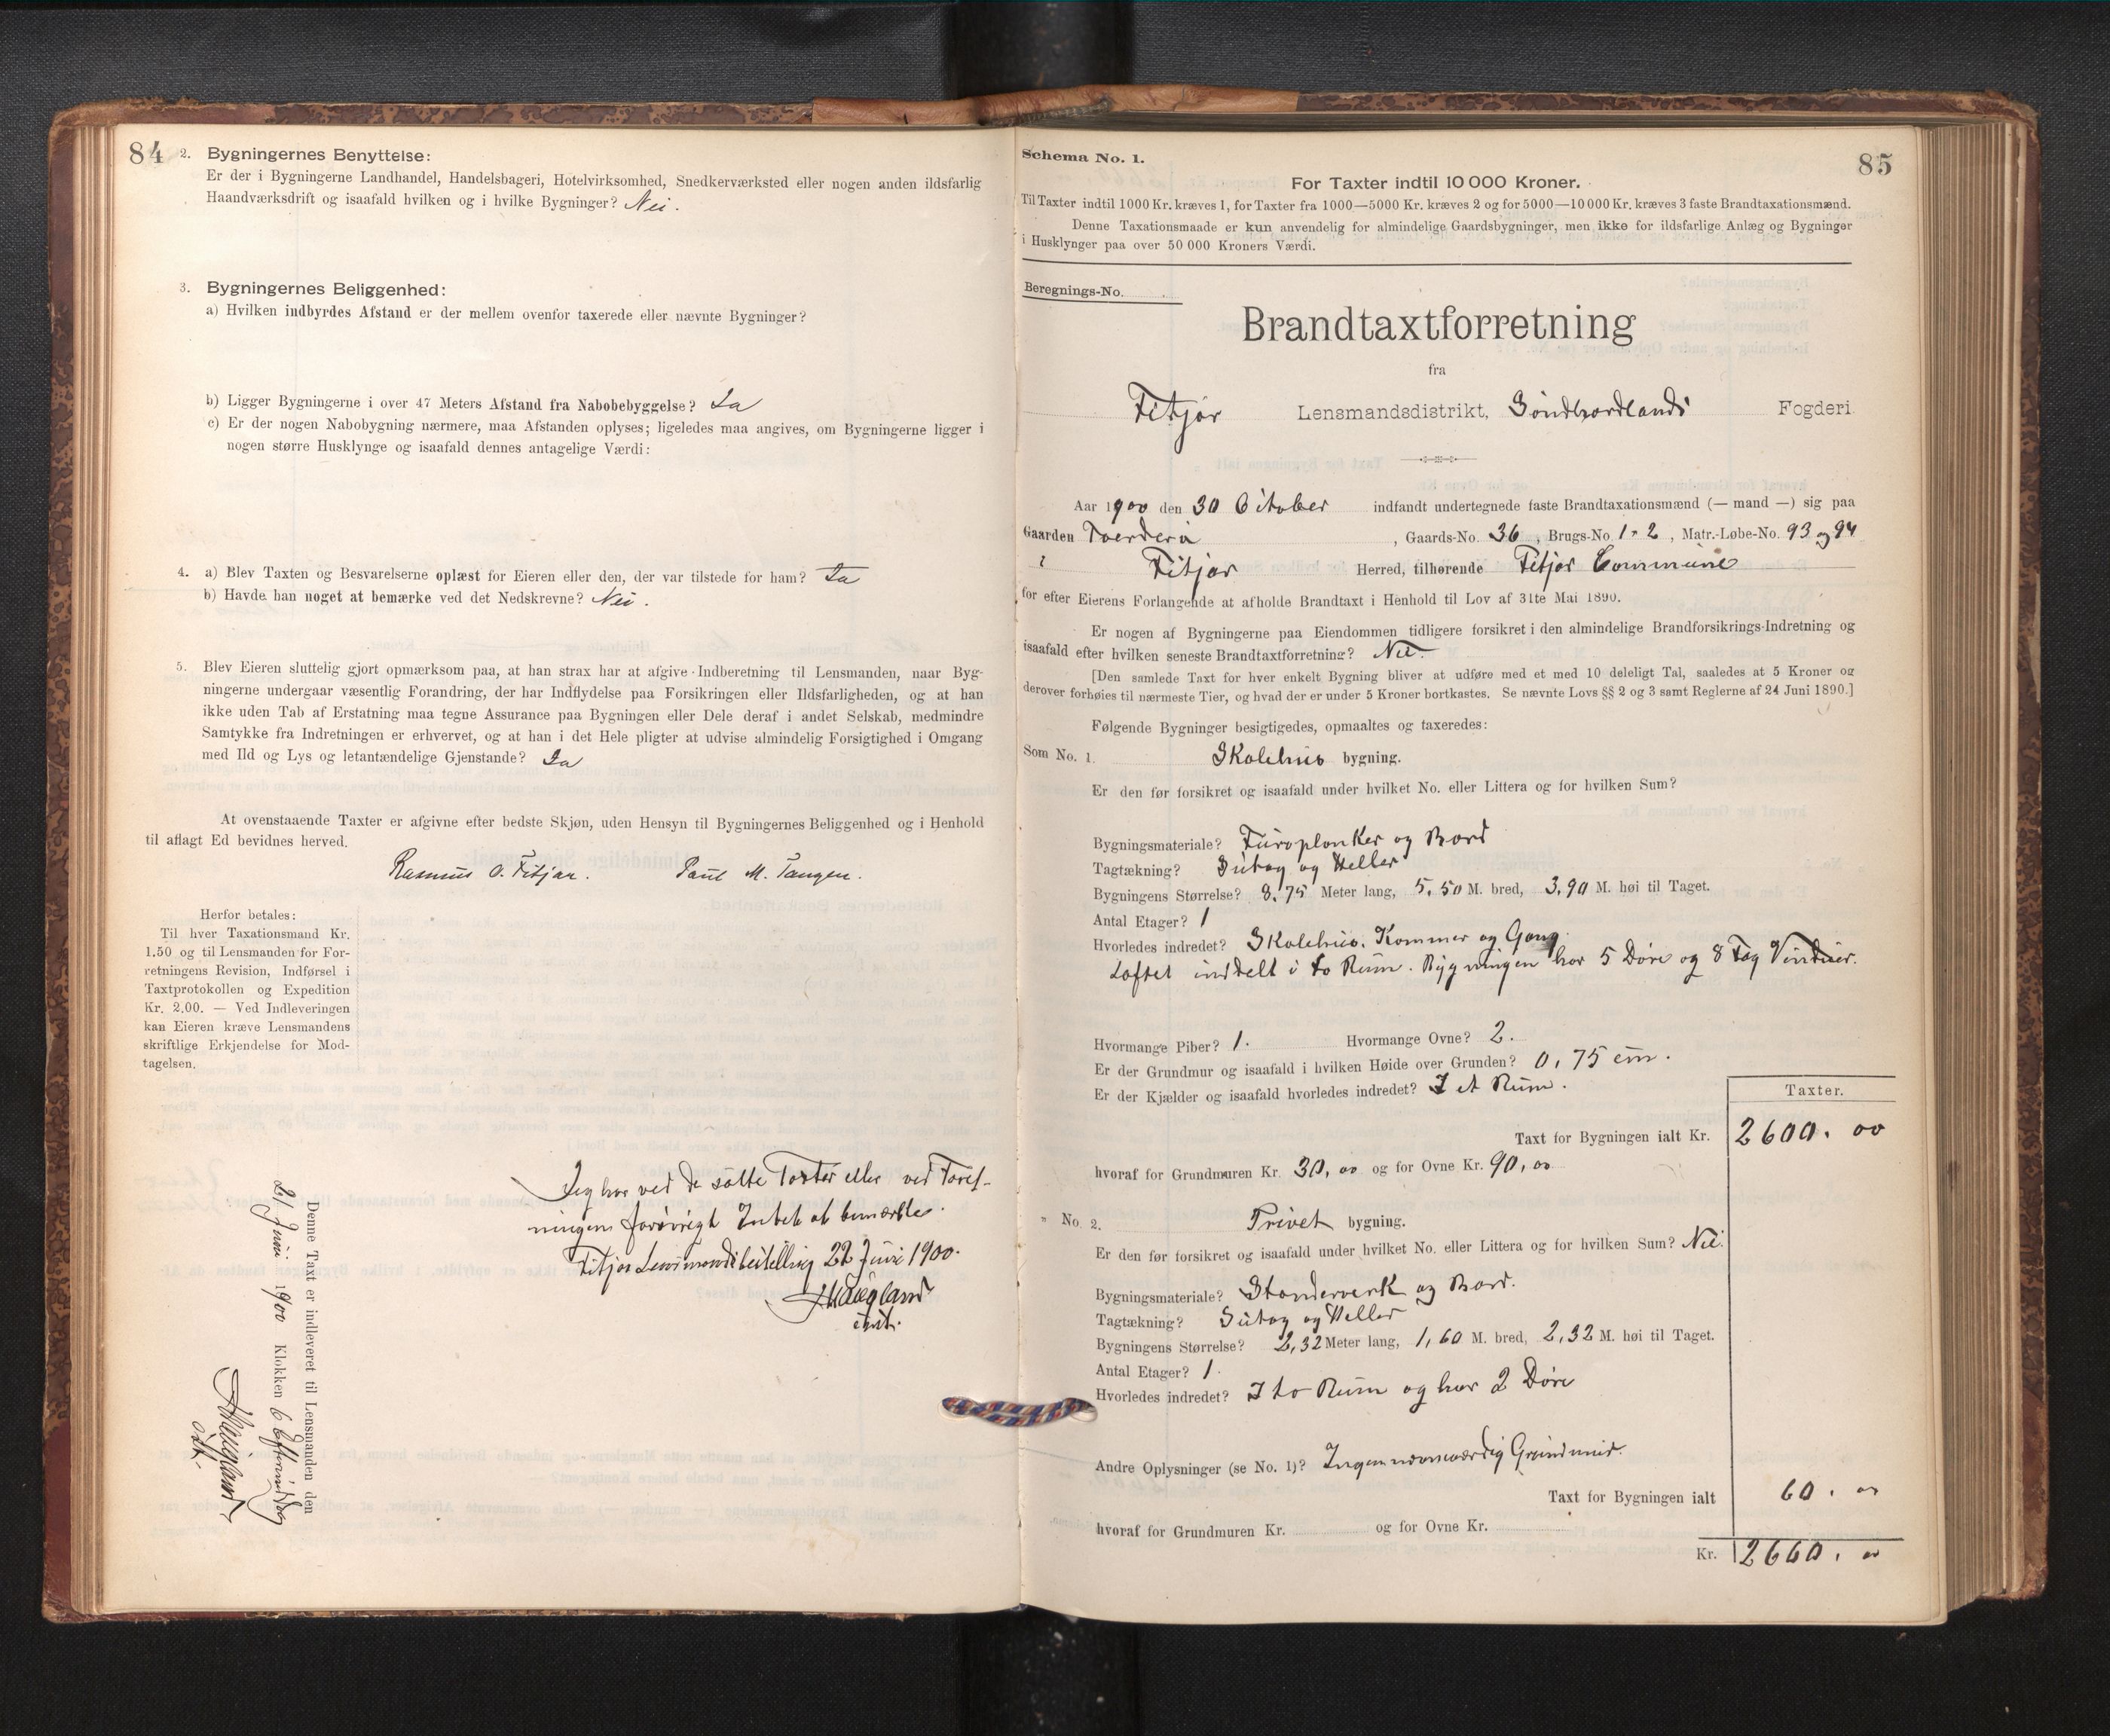 84
2. Bygningernes Benyttelse:
Er der i Bygningerne Landhandel, Handelsbageri, Hotelvirksomhed, Snedkerværksted eller nogen anden ildsfarlig
Haandværksdrift og isaafald hvilken og i hvilke Bygninger? Nei.
3. Bygningernes Beliggenhed:
a) Hvilken indbyrdes Afstand er der mellem ovenfor taxerede eller nævnte Bygninger?
b) Ligger Bygningerne i over 47 Meters Afstand fra Nabobebyggelse? Ja
c) Er der nogen Nabobygning nærmere, maa Afstanden oplyses; ligeledes maa angives, om Bygningerne ligger i
nogen større Husklynge og isaafald dennes antagelige Værdi:
4. a) Blev Taxten og Besvarelserne oplæst for Eieren eller den, der var tilstede for ham? Ja
b) Havde han noget at bemærke ved det Nedskrevne? Nei.
5. Blev Eieren sluttelig gjort opmærksom paa, at han strax har at afgive Indberetning til Lensmanden, naar Byg-
ningerne undergaar væsentlig Forandring, der har Indflydelse paa Forsikringen eller Ildsfarligheden, og at han
ikke uden Tab af Erstatning maa tegne Assurance paa Bygningen eller Dele deraf i andet Selskab, medmindre
Samtykke fra Indretningen er erhvervet, og at han i det Hele pligter at udvise almindelig Forsigtighed i Omgang
med Ild og Lys og letantændelige Gjenstande? Ja
At ovenstaaende Taxter er afgivne efter bedste Skjøn, uden Hensyn til Bygningernes Beliggenhed og i Henhold
til aflagt Ed bevidnes herved.
Rasmus O. Fitjar. Paul M. Tangen.
Herfor betales:
Til hver Taxationsmand Kr.
1.50 og til Lensmanden for For-
retningens Revision, Indførsel i
Taxtprotokollen og Expedition
Kr. 2.00. — Ved Indleveringen
kan Eieren kræve Lensmandens
skriftlige Erkjendelse for Mod-
tagelsen.
Jeg har ved de satte Taxter eller ved Forret-
ningen forøvrigt Intet at bemærke.
Fitjar Lensmandsbestilling 22 Juni 1900.
Denne Taxt er indleveret til Lensmanden den
21 Juni 1900 Klokken 6 Eftermiddag
85
Schema No. 1.
For Taxter indtil 10 000 Kroner.
Til Taxter indtil 1000 Kr. kræves 1, for Taxter fra 1000—5000 Kr. kræves 2 og for 5000—10 000 Kr. kræves 3 faste Brandtaxationsmænd.
Denne Taxationsmaade er kun anvendelig for almindelige Gaardsbygninger, men ikke for ildsfarlige Anlæg og Bygninger
i Husklynger paa over 50 000 Kroners Værdi.
Beregnings-No.
Brandtaxtforretning
fra
Fitjar Lensmandsdistrikt, Söndhordlands Fogderi
Aar 1900 den 30 October indfandt undertegnede faste Brandtaxationsmænd (— mand —) sig paa
Gaarden , Gaards-No. 36, Brugs-No. 1-2, Matr.-Løbe-No. 93 og 94
i Fitjar Herred, tilhørende Fitjar Commune
for efter Eierens Forlangende at afholde Brandtaxt i Henhold til Lov af 31te Mai 1890.
Er nogen af Bygningerne paa Eiendommen tidligere forsikret i den almindelige Brandforsikrings-Indretning og
isaafald efter hvilken seneste Brandtaxtforretning? Nei.
[Den samlede Taxt for hver enkelt Bygning bliver at udføre med et med 10 deleligt Tal, saaledes at 5 Kroner og
derover forhøies til nærmeste Tier, og hvad der er under 5 Kroner bortkastes. Se nævnte Lovs §§ 2 og 3 samt Reglerne af 24 Juni 1890.]
Følgende Bygninger besigtigedes, opmaaltes og taxeredes:
Som No. 1. Skolehus bygning.
Er den før forsikret og isaafald under hvilket No. eller Littera og for hvilken Sum?
Bygningsmateriale? Furoplanker og Bord
Tagtækning? Sutag og Heller
Bygningens Størrelse? 8,75 Meter lang, 5,50 M. bred, 3,90 M. høi til Taget.
Antal Etager? 1
Hvorledes indredet? Skolehus. Kammer og Gang
Loftet inddelt i to Rum. Bygningen har 5 Døre og 8 Fag Vinduer.
Hvormange Piber? 1. Hvormange Ovne? 2.
Er der Grundmur og isaafald i hvilken Høide over Grunden? 0,75 cm.
Er der Kjælder og isaafald hvorledes indredet? I et Rum.
Taxter.
Taxt for Bygningen ialt Kr. 2600.00
hvoraf for Grundmuren Kr. 30,00 og for Ovne Kr. 90,00
" No. 2. Privet bygning.
Er den før forsikret og isaafald under hvilket No. eller Littera og for hvilken Sum? Nei.
Bygningsmateriale? Standerverk og Bord.
Tagtækning? Sutag og Heller
Bygningens Størrelse? 2,32 Meter lang, 1,60 M. bred, 2,32 M. høi til Taget.
Antal Etager? 1.
Hvorledes indredet? I to Rum og har 2 Døre
Andre Oplysninger (se No. 1)? Ingen nævneværdig Grundmur.
Taxt for Bygningen ialt 60.00
hvoraf for Grundmuren Kr. og for Ovne Kr.
Kr. 2660.00